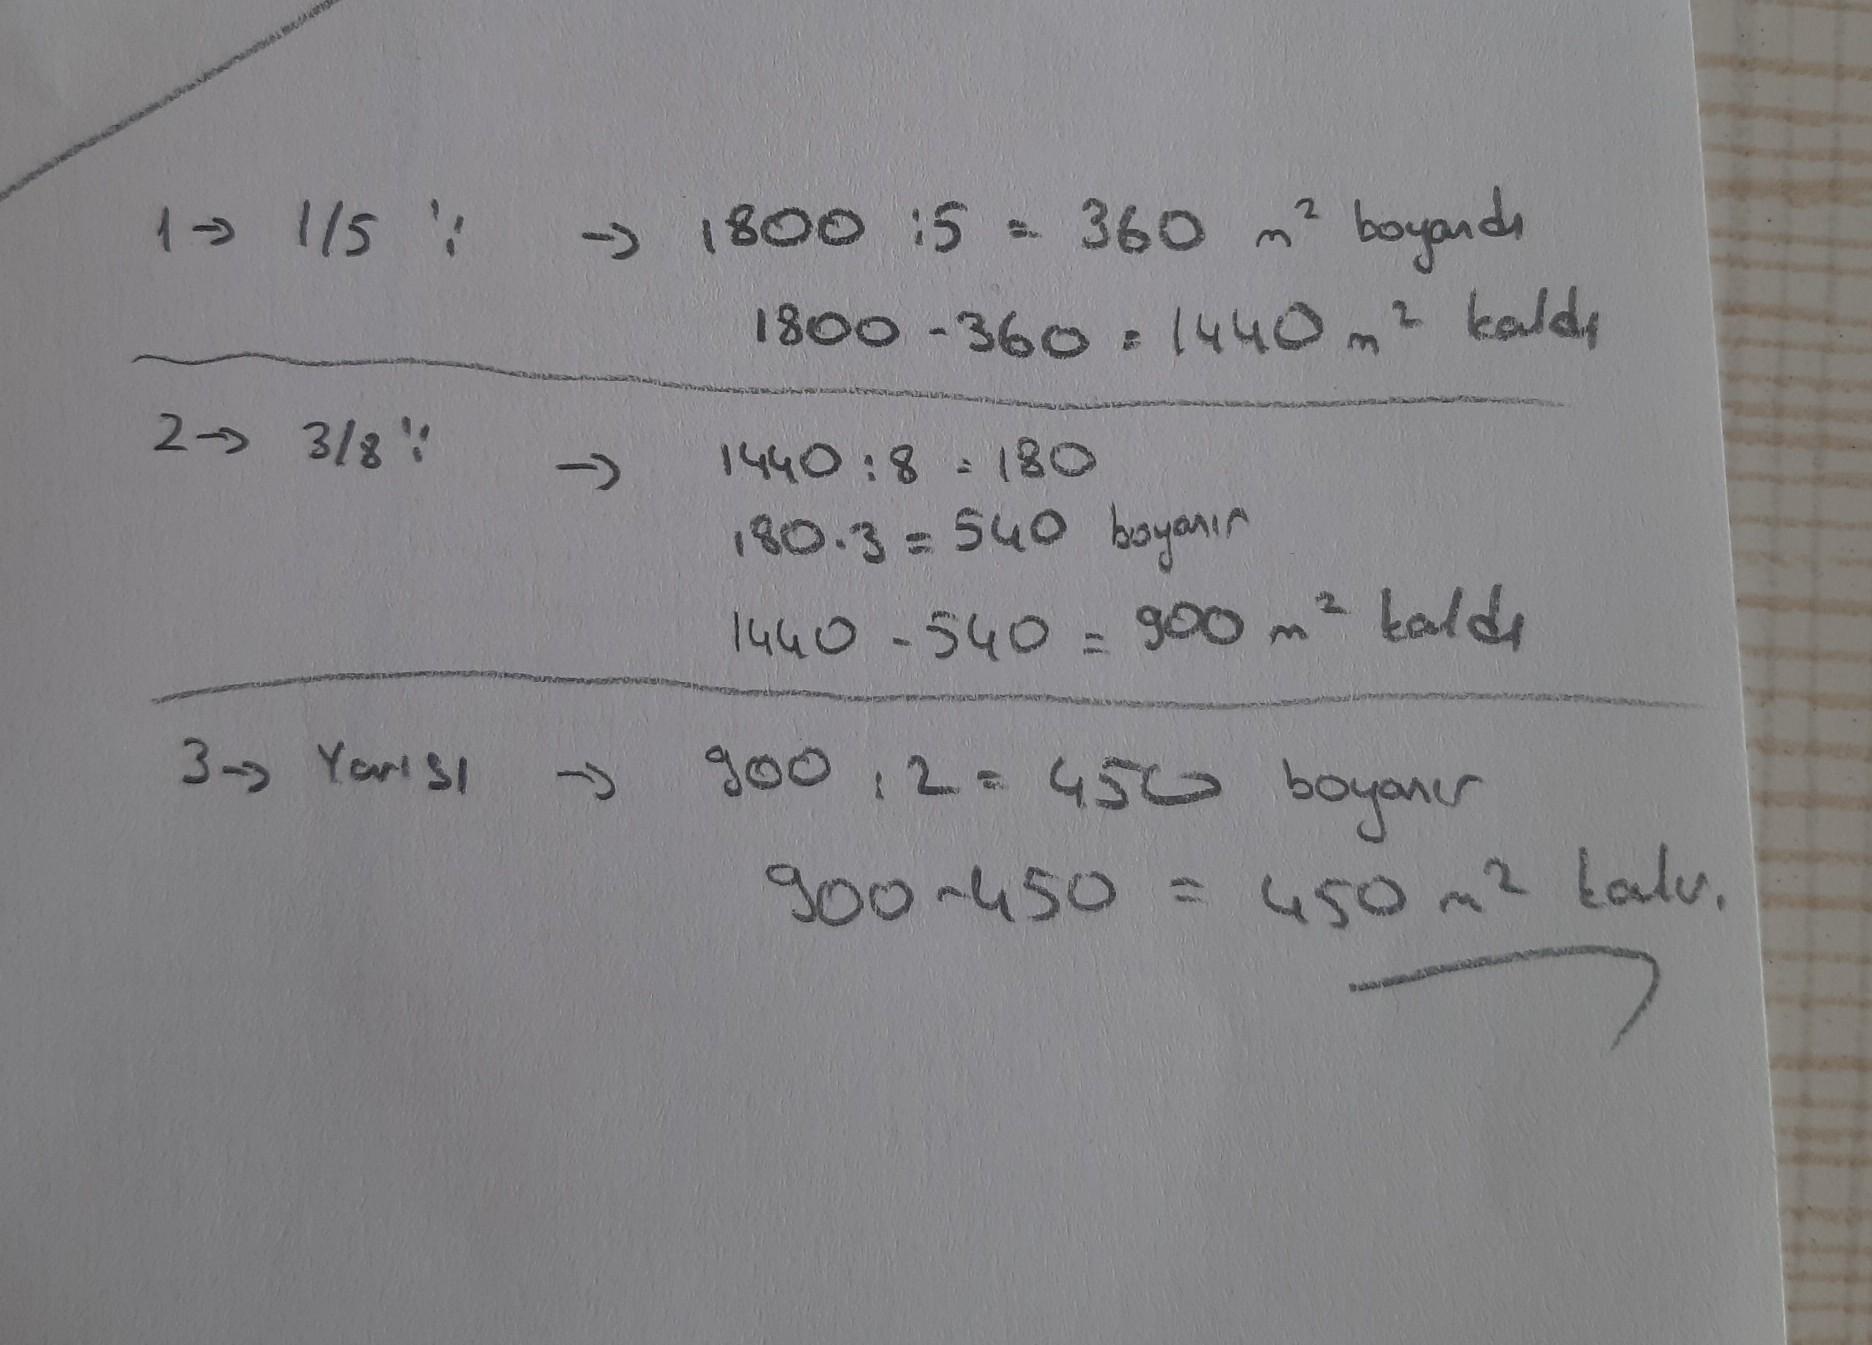 1→ 1/5 'i → 1800 :5 = 360 m² boyandı
1800 - 360 = 1440 m² kaldı
2→ 3/8 'i → 1440 : 8 = 180
180.3 = 540 boyanır
1440 - 540 = 900 m² kaldı
3→ Yarısı → 900 : 2 = 450 boyanır
900 - 450 = 450 m² kalır.